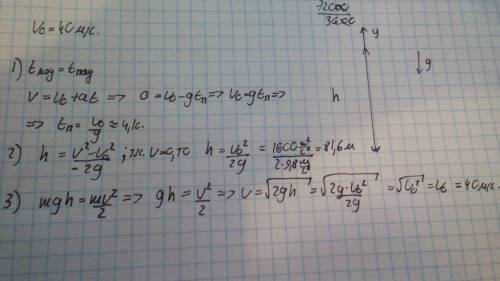 V₀ = 40 м/с.
y
g
h
1) tпод = tпад
V = V₀ + at ⇒ 0 = V₀ - gtп ⇒ V₀ = gtп ⇒
⇒ tп = V₀/g ≈ 4,1с.
2) h = (V² - V₀²)/(-2g) ; т.к. V=0, то h = V₀²/2g = (1600 м²/с²)/(2·9,8 м/с²) = 81,6 м
3) mgh = mV²/2 ⇒ gh = V²/2 ⇒ V = √(2gh) = √(2g·V₀²/2g) = √(V₀²) = V₀ = 40 м/с.